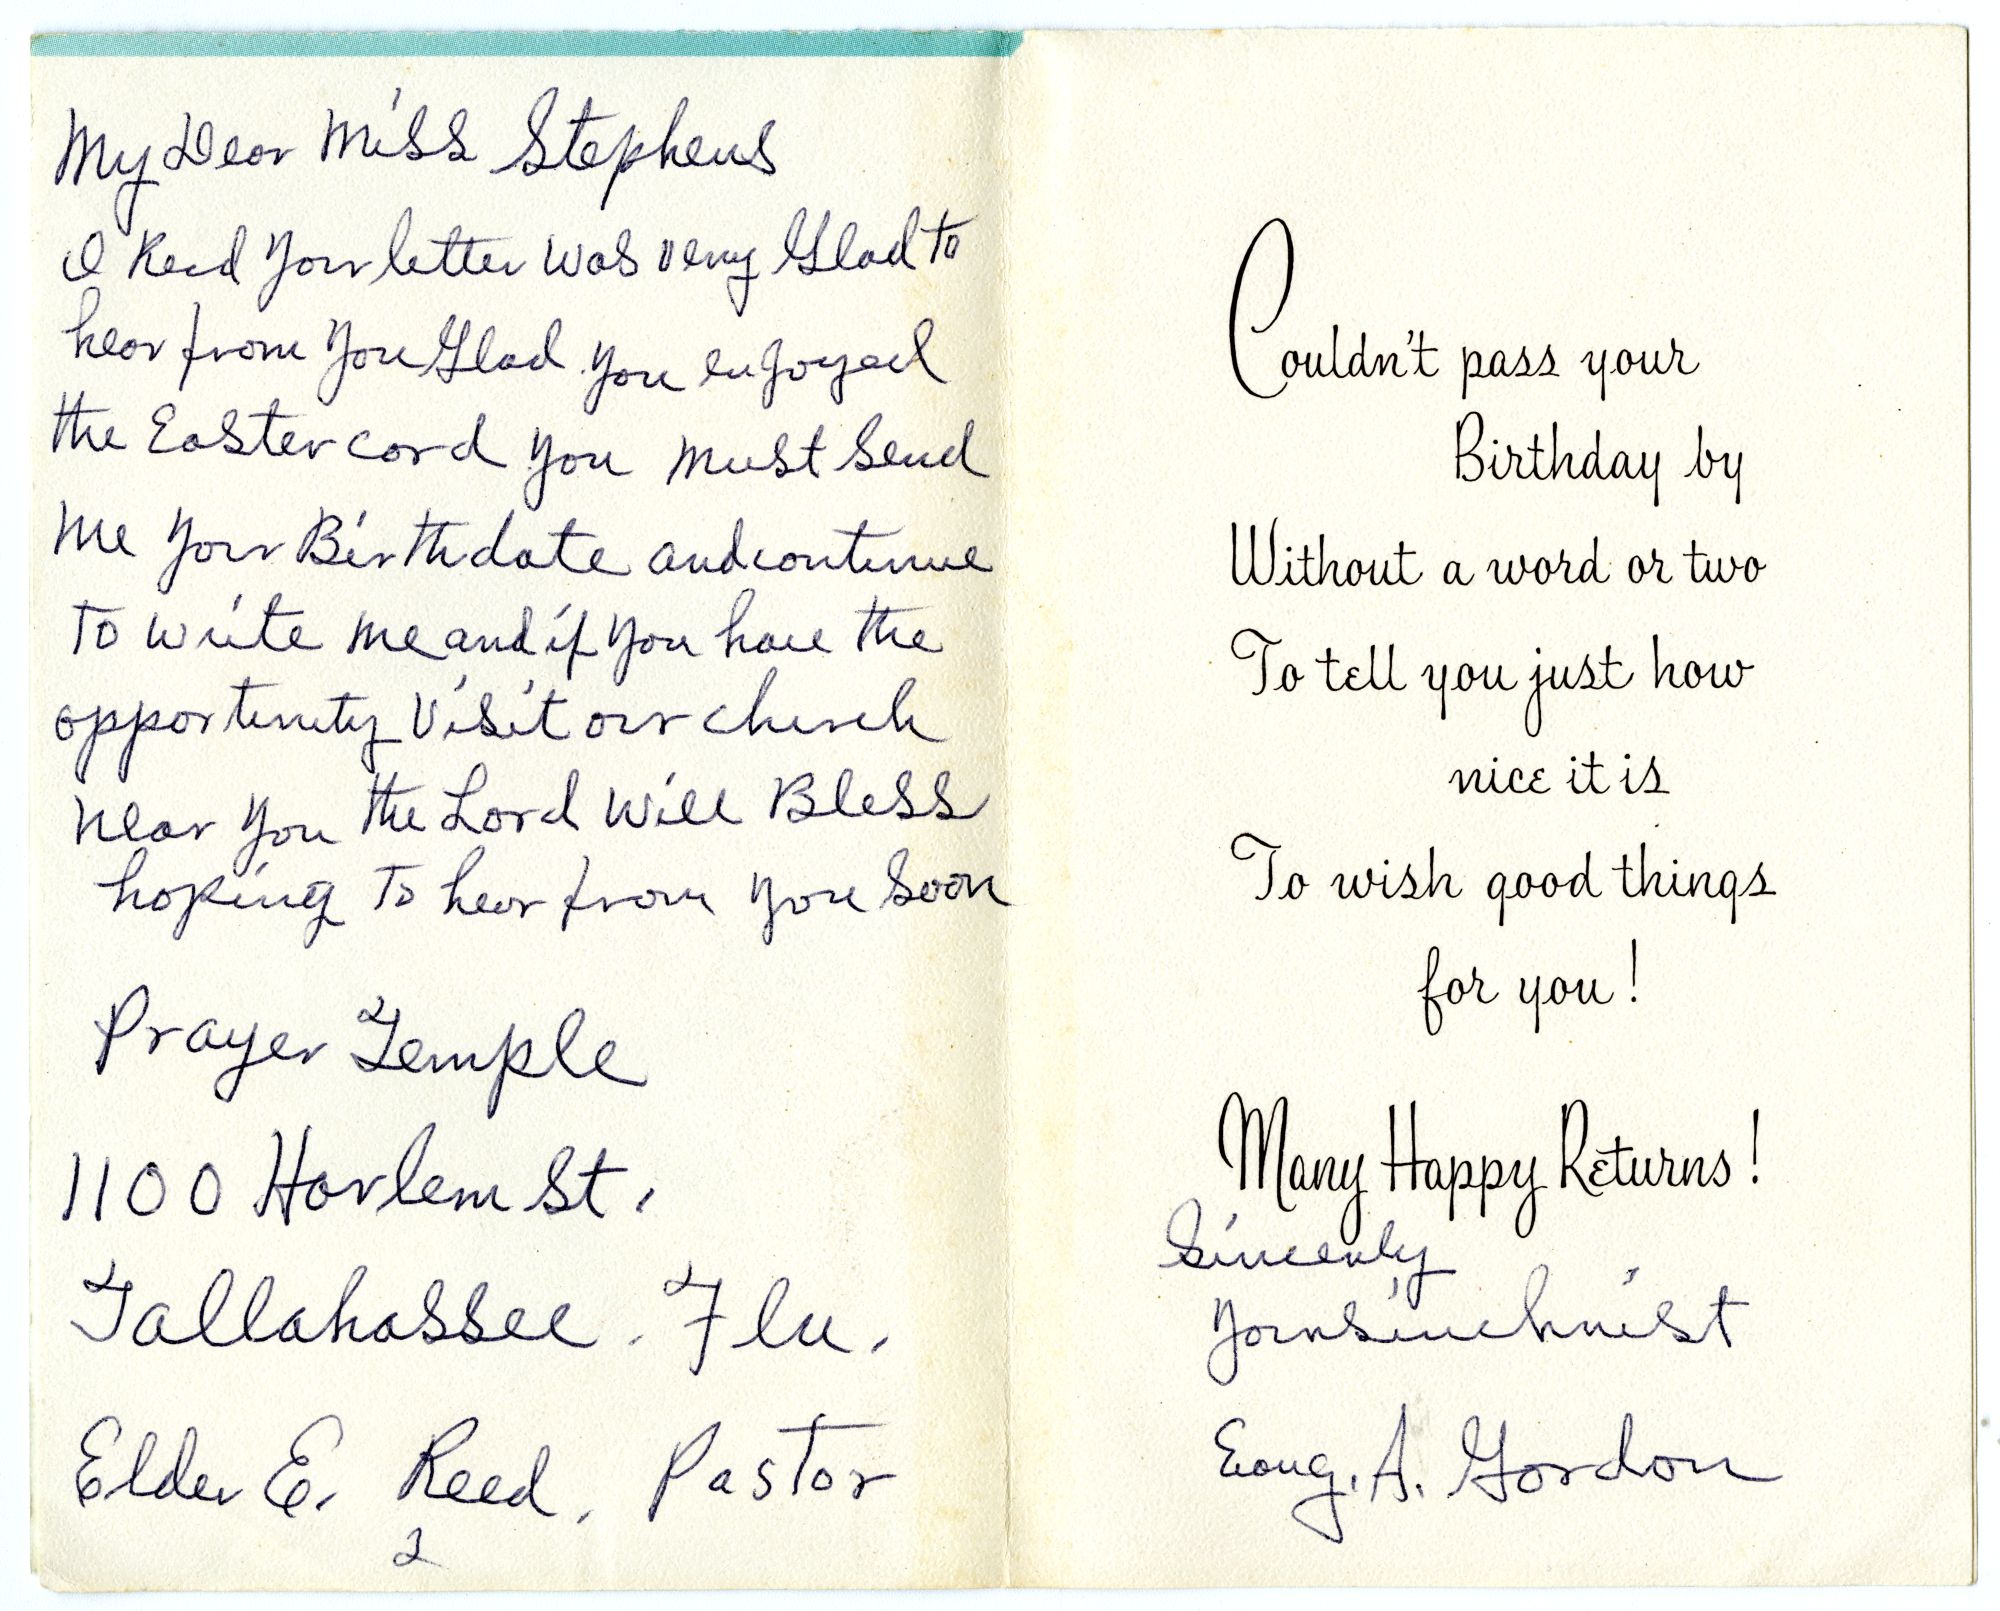 My Dear Miss Stephens
I Recd Your letter was very Glad to
hear from You Glad You enjoyed
the Easter card You must send
me Your Birthdate and continue
to write me and if You have the
opportunity Visit our church
near You the Lord Will Bless
hoping to hear from You soon
Prayer Temple
1100 Harlem St.
Tallahassee. Fla.
Elder E. Reed, Pastor
2
Couldn't pass your
Birthday by
Without a word or two
To tell you just how
nice it is
To wish good things
for you!
Many Happy Returns!
Sincerely
Yours in Christ
Evang. A. Gordon